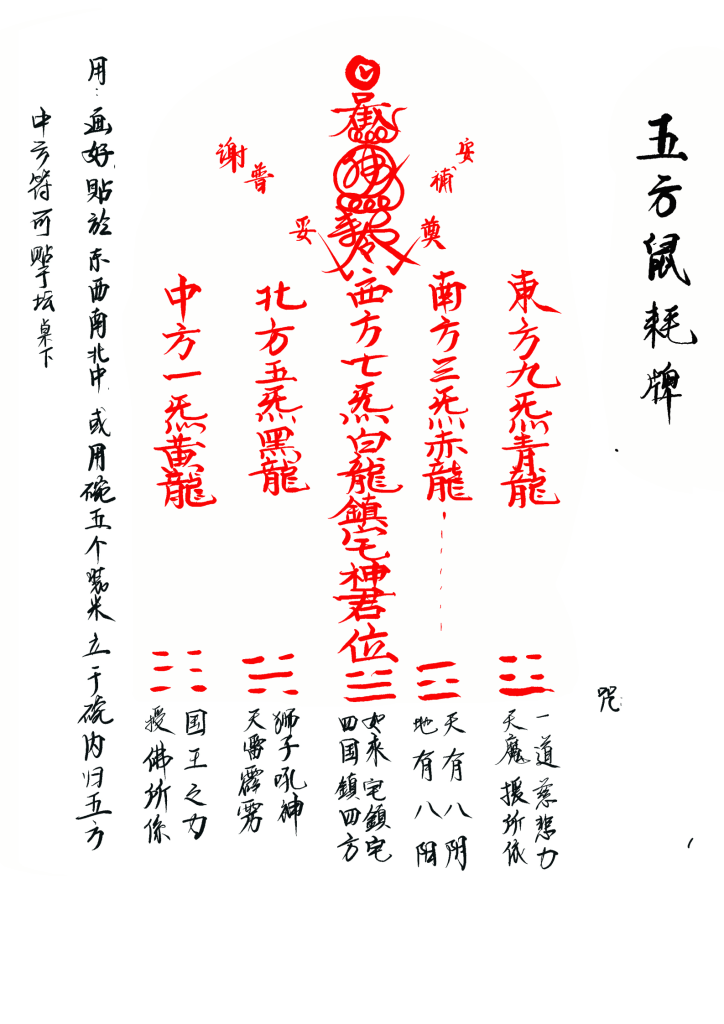 五方鼠耗牌
東方九炁青龍
南方三炁赤龍
西方七炁白龍鎮宅神君位
北方五炁黑龍
中方一炁黄龍
安
補
奠
谢
普
妥
咒:
一道慈悲力
天魔援所依
天有八阴
地有八阳
如来宅鎮宅
四国鎮四方
狮子吼神
天雷霹雳
国王之力
授佛所係
用:画好貼於东西南北中或用碗五个装米立于碗内归五方
中方符可贴于坛桌下